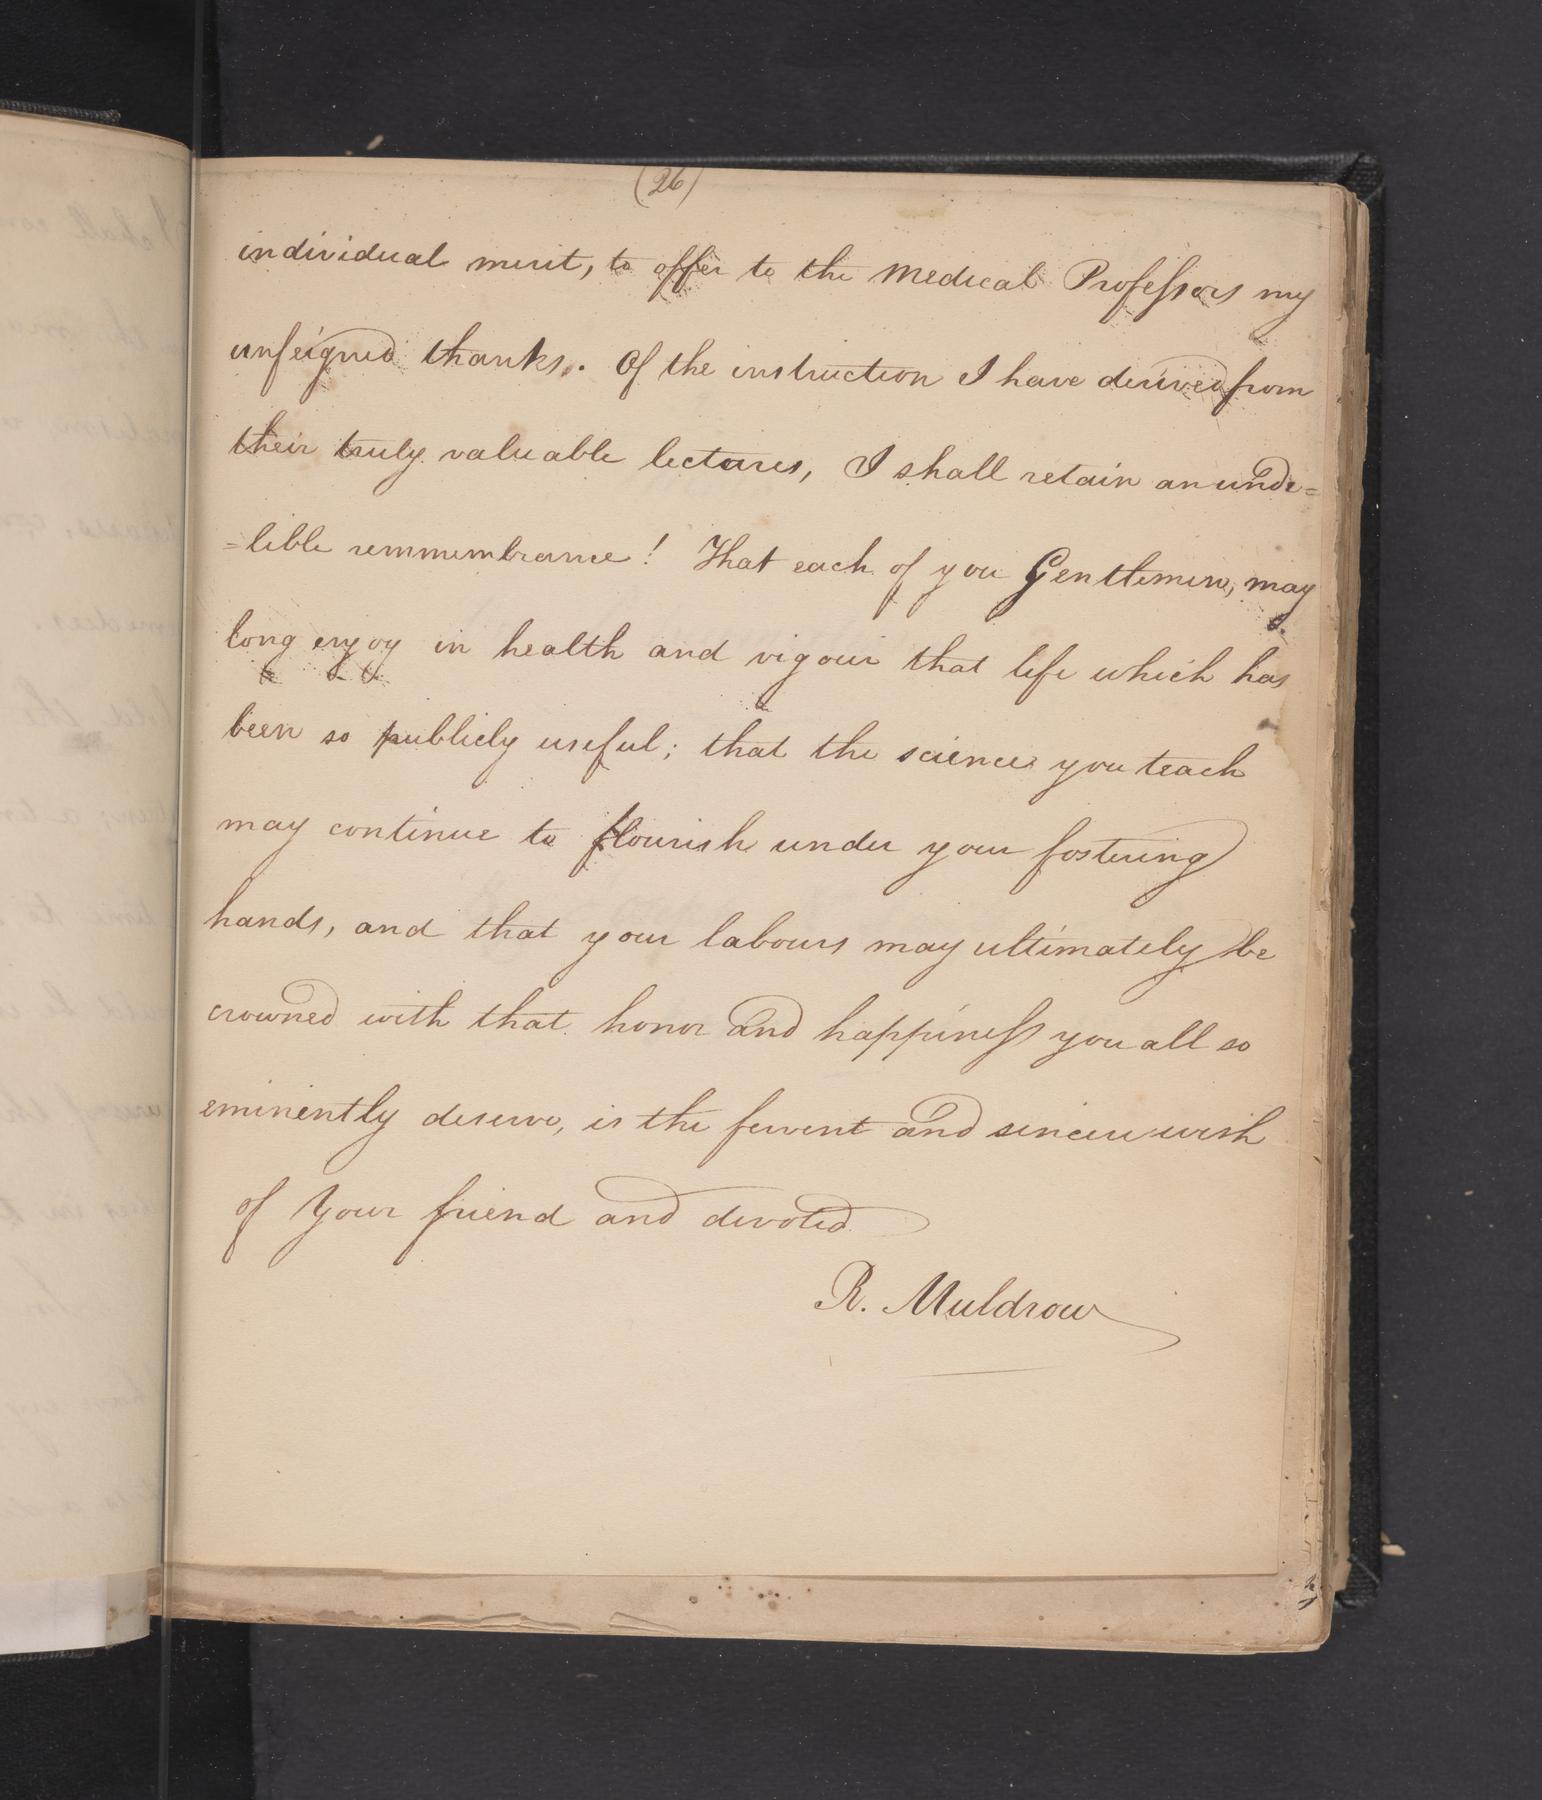 (26)
individual merit, to offer to the Medical Professors my
unfeigned thanks. Of the instruction I have derived from
their truly valuable lectures, I shall retain an inde=
=lible remmembrance! That each of you Gentlemen, may
long enjoy in health and vigour that life which has
been so publicly useful; that the science you teach
may continue to flourish under your fostering
hands, and that your labours may ultimately be
crowned with that honor and happiness you all so
eminently deserve, is the fervent and sincere wish
of Your friend and devoted
R. Muldrow